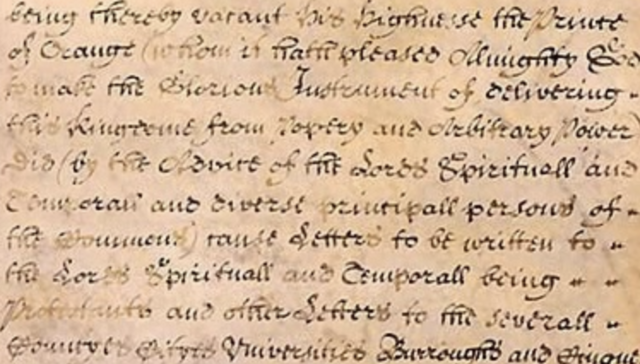 being thereby vacant His Highnesse the Prince
of Orange (whom it hath pleased Almighty God
to make the Glorious Instrument of delivering
this Kingdome from Popery and Arbitrary Power
did (by the Advice of the Lords Spirituall and
Temporall and diverse principall persons of
the Commons) cause Letters to be written to
the Lords Spirituall and Temporall being
Protestants and other Letters to the severall
Countyes Cityes Universities Burroughs and Cinque